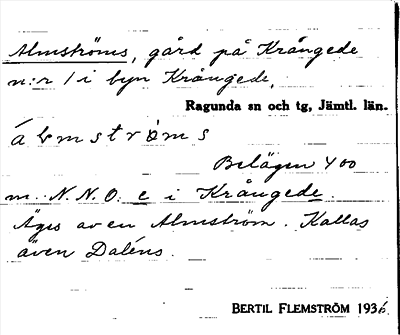 Almströms, gård på Krångede
n:r 1 i byn Krångede,
Ragunda sn och tg, Jämtl. län.
álmströms
Belägen 400
m. N.N.O. e i Krångede.
Äges av en Almström. Kallas
även Daléns.
BERTIL FLEMSTRÖM 1936.